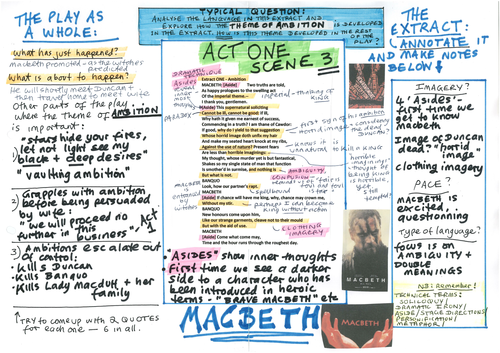 THE PLAY AS
A WHOLE:
What has just happened?
macbeth promoted - as the witches
predicted
What is about to happen?
He will shortly meet Duncan +
then travel home to meet wife.
Other parts of the play
where the theme of AMBITION
is important:
"stars hide your fires,
let not light see my
black + deep desires"
"vaulting ambition"
2) Grapples with ambition
before being persuaded
by wife:
"we will proceed no
further in this
business"
Act 1
3) Ambitions escalate out
of control:
- Kills Duncan
- Kills Banquo
- Kills Lady Macduff + her
family
↑TRY to come up with 2 QUOTES
for each one - 6 in all.
TYPICAL QUESTION:
ANALYSE THE LANGUAGE IN THIS EXTRACT AND
EXPLORE HOW THE THEME OF AMBITION IS DEVELOPED
IN THE EXTRACT. HOW IS THIS THEME DEVELOPED IN THE REST
OF THE PLAY?
ACT ONE
SCENE 3
DRAMATIC
TECHNIQUE
Asides
Extract One - Ambition
MACBETH [Aside] Two truths are told,
As happy prologues to the swelling act
Of the imperial theme.--
I thank you, gentlemen.
[Aside] This supernatural soliciting
Cannot be ill, cannot be good: if ill,
Why hath it given me earnest of success,
Commencing in a truth? I am thane of Cawdor:
If good, why do I yield to that suggestion
Whose horrid image doth unfix my hair
And make my seated heart knock at my ribs,
Against the use of nature? Present fears
Are less than horrible imaginings:
My thought, whose murder yet is but fantastical,
Shakes so my single state of man that function
Is smother'd in surmise, and nothing is
But what is not.
BANQUO
Look, how our partner's rapt.
MACBETH
[Aside] If chance will have me king, why, chance may crown me,
Without my stir.
BANQUO
New honours come upon him,
Like our strange garments, cleave not to their mould
But with the aid of use.
MACBETH
[Aside] Come what may,
Time and the hour runs through the roughest day.
PARADOX
AMBIGUITY
CLOTHING
IMAGERY
• "ASIDES" show inner thoughts
• First time we see a darker
side to a character who has
been introduced in heroic
terms - "BRAVE MACBETH" etc
MACBETH
THE
EXTRACT:
ANNOTATE IT
AND MAKE
NOTES
BELOW ↓
IMAGERY?
4 'Asides' -
first time we
get to know
Macbeth
Image of Duncan
dead? "horrid
image"
clothing imagery
PACE?
MACBETH is
excited,
questionning
Type of language?
focus is on
AMBIGUITY +
DOUBLE
MEANINGS
NB: Remember!
TECHNICAL TERMS:
SOLILOQUY/
DRAMATIC IRONY/
ASIDE/STAGE DIRECTIONS/
PERSONIFICATION/
METAPHOR/
MACBETH
MACBETH